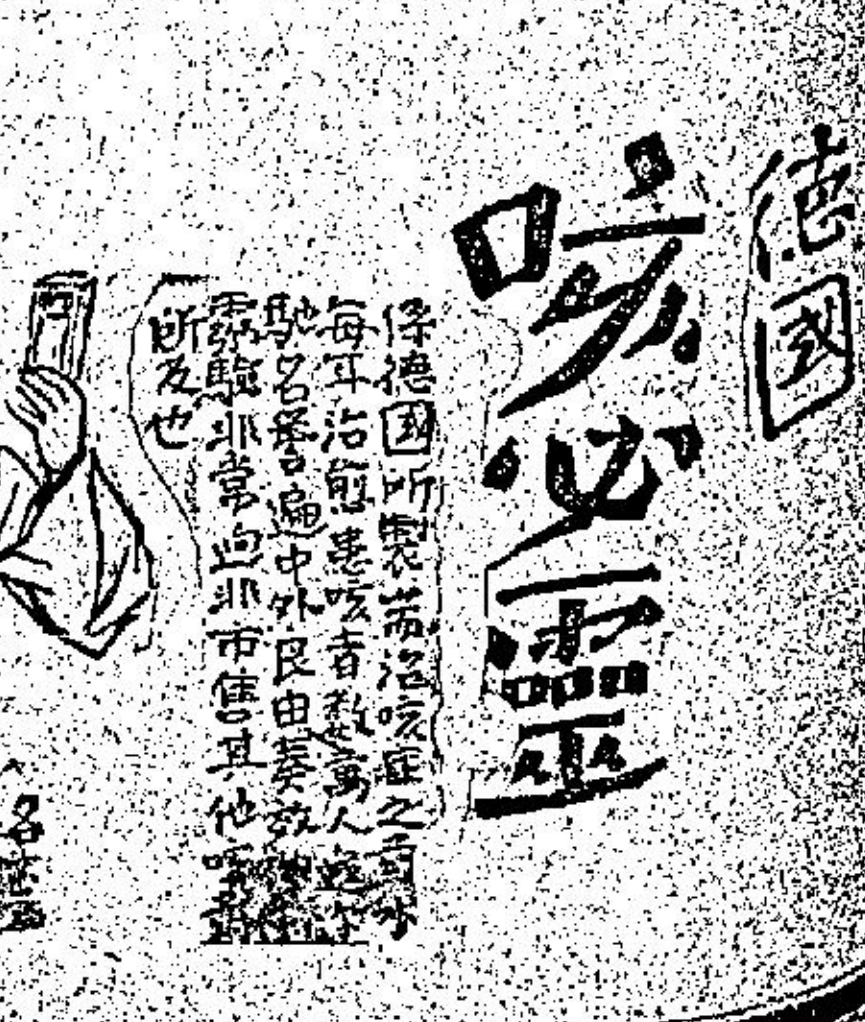 德國
咳必靈
係德國所製者治咳症之
每年治愈患咳者數萬人
馳名譽遍中外良由奏效
靈驗非常迥非市售其他
所及也
名